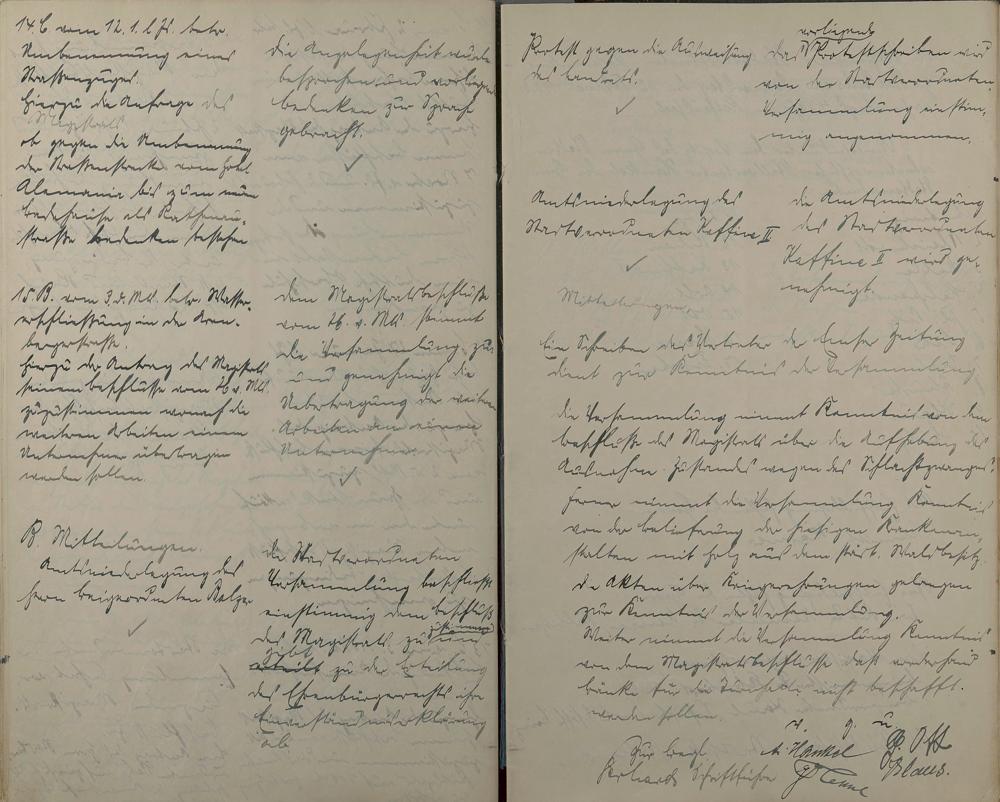 14. C vom 12.1. l. Js. betr.
Umbenennung eines
Straßenzuges.
Hierzu die Anfrage des
Magistrats
ob gegen die Umbenennung
der Straßenstrecke vom Hotel
Alemania bis zum
als Rathenau-
straße Bedenken bestehen
die Angelegenheit wurde
besprochen und
Bedenken zur Sprache
gebracht.
15 B. vom 3. d. Mts. betr. Wasser-
erschließung in der Kron-
bergerstraße.
Hierzu der Antrag des Magistrats
seinem Beschlusse vom 26. v. Mts.
zuzustimmen wonach die
weiteren Arbeiten einem
Unternehmer übertragen
werden sollen.
dem Magistratsbeschlusse
vom 26. v. Mts stimmt
die Versammlung zu
und genehmigt die
Uebertragung der weiteren
Arbeiten an einen
Unternehmer.
B. Mitteilungen.
Amtsniederlegung des
Herrn Beigeordneten
die Stadtverordneten
Versammlung beschließt
einstimmig dem Beschluß
des Magistrats
zu der Erteilung
des Ehrenbürgerrechts ihre
Einverständniserklärung
ab
Protest gegen die Ausweisung
des Landrats.
vorliegende
das Protestschreiben wird
von der Stadtverordneten-
Versammlung einstim-
mig angenommen.
Amtsniederlegung des
Stadtverordneten II
die Amtsniederlegung
des Stadtverordneten
II wird ge-
nehmigt.
Mitteilungen.
Ein Schreiben des Vertreter der Zeitung
dient zur Kenntnis der Versammlung
die Versammlung nimmt Kenntnis von dem
Beschluße des Magistrats über die Aufhebung des
Ausnahme-Zustandes wegen des Schlachtzwanges.
Ferner nimmt die Versammlung Kenntnis
von der Belieferung der hiesigen Kranken-
stalten mit Holz aus dem städt. Waldbesitz.
die Akten über Kriegerehrungen gelangen
zur Kenntnis der Versammlung.
Weiter nimmt die Versammlung Kenntnis
von dem Magistratsbeschlusse daß vorderhand
Bänke für die nicht beschafft
werden sollen.
v. g. u.
Zur Begl.
Schriftführer
A. Hankel
Ott
Klaus.